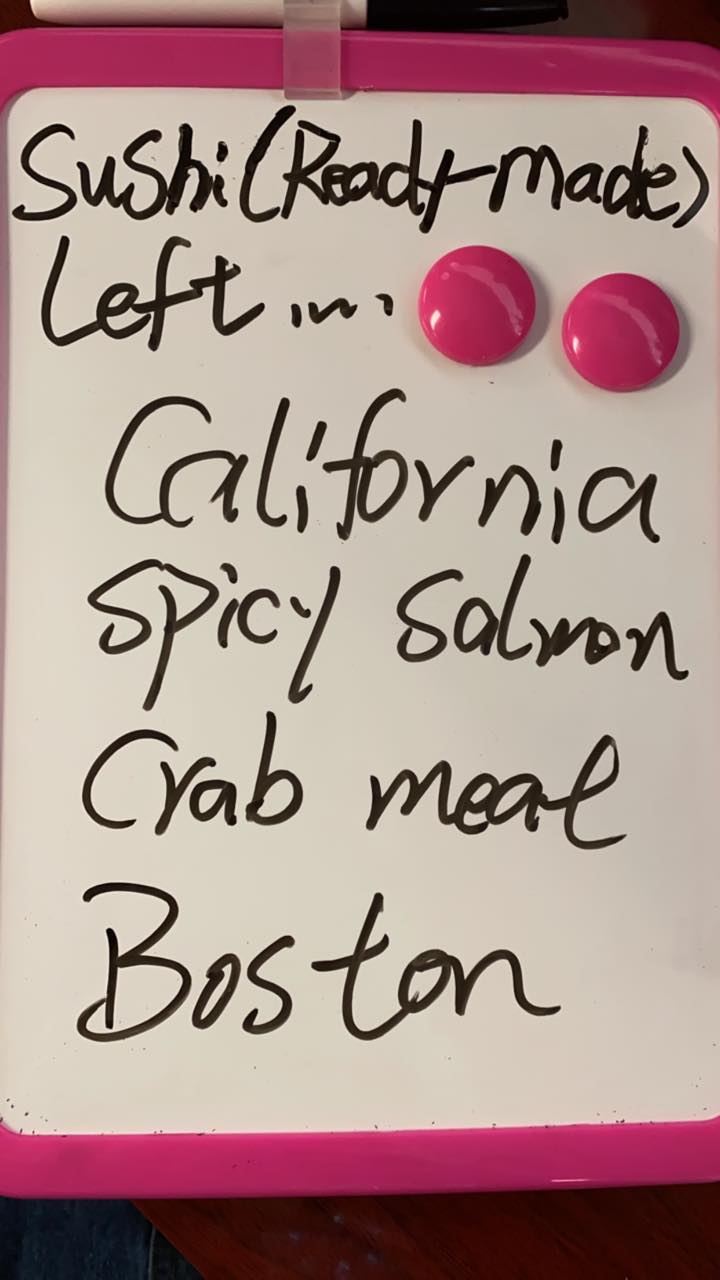 Sushi(Ready-made)
Left ....
California
Spicy Salmon
Crab meat
Boston